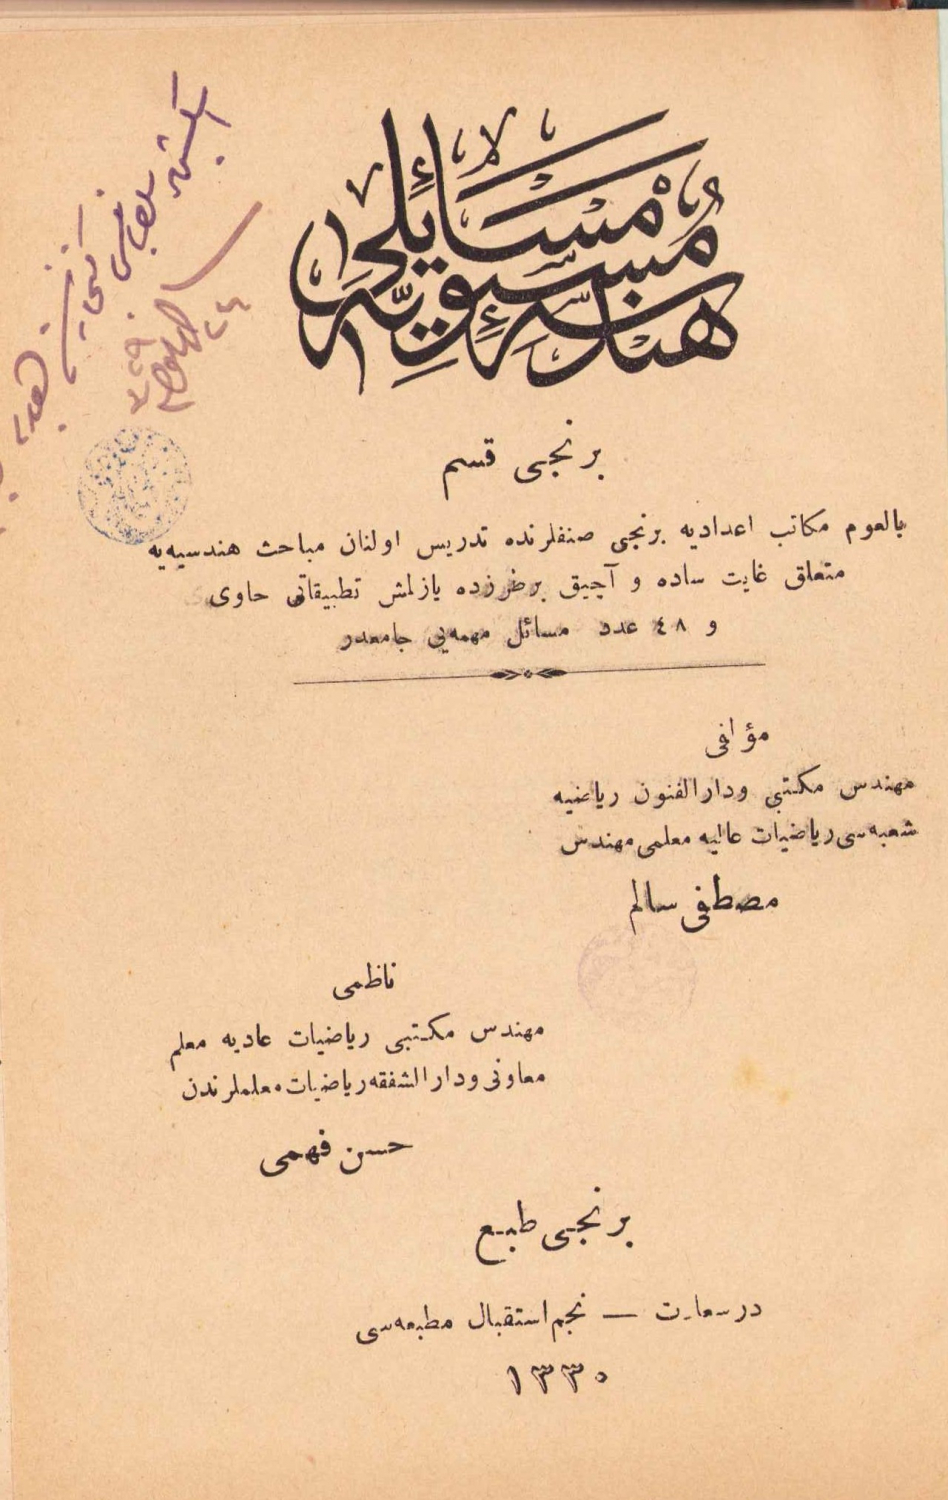 هندسهٔ مستویه مسائلی
برنجی قسم
بالعموم مكاتب اعدادیه برنجی صنفلرنده تدریس اولنان مباحث هندسیه‌یه
متعلق غایت ساده و آچیق برطرزده یازلمش تطبیقاتی حاوی
و ٤٨ عدد مسائل مهمه‌یی جامعدر
مؤلفی
مهندس مكتبی ودارالفنون ریاضیه
شعبه‌سی ریاضیات عالیه معلمی مهندس
مصطفی سالم
ناظمی
مهندس مكتبی ریاضیات عادیه معلم
معاونی ودارالشفقه ریاضیات معلملرندن
حسن فهمی
برنجی طبع
درسعادت — نجم استقبال مطبعه‌سی
١٣٣٠